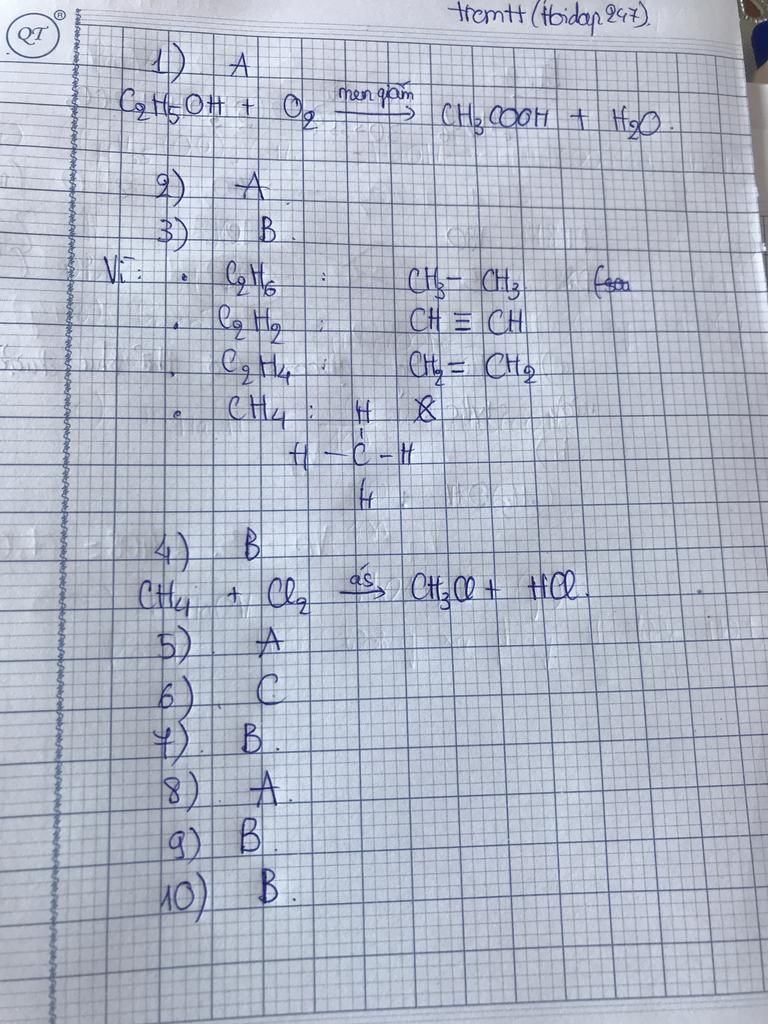 QT ®
trcmtt (Hoidap247).
1) A
C₂H₅OH + O₂ men giấm → CH₃COOH + H₂O.
2) A
3) B.
Vì: . C₂H₆ : CH₃ - CH₃
. C₂H₂ : CH ≡ CH
. C₂H₄ : CH₂ = CH₂
. CH₄ : H
H - C - H
H
4) B
CH₄ + Cl₂ ás → CH₃Cl + HCl.
5) A
6) C
7) B.
8) A.
9) B
10) B.